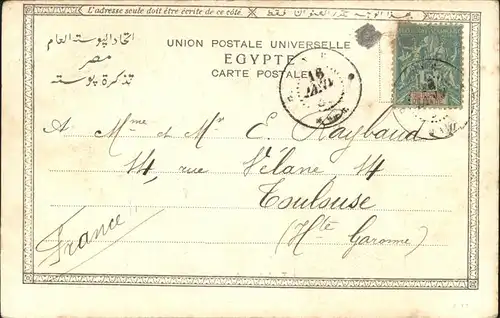 L'adresse seule doit être écrite de ce côté.
اتحاد البوستة العام
مصر
تذكرة بوستة
UNION POSTALE UNIVERSELLE
EGYPTE
CARTE POSTALE
16
JANV.
A Mme et Mr E. Raybaud
14, rue Vélane, 14
Toulouse
(Hte Garonne)
France